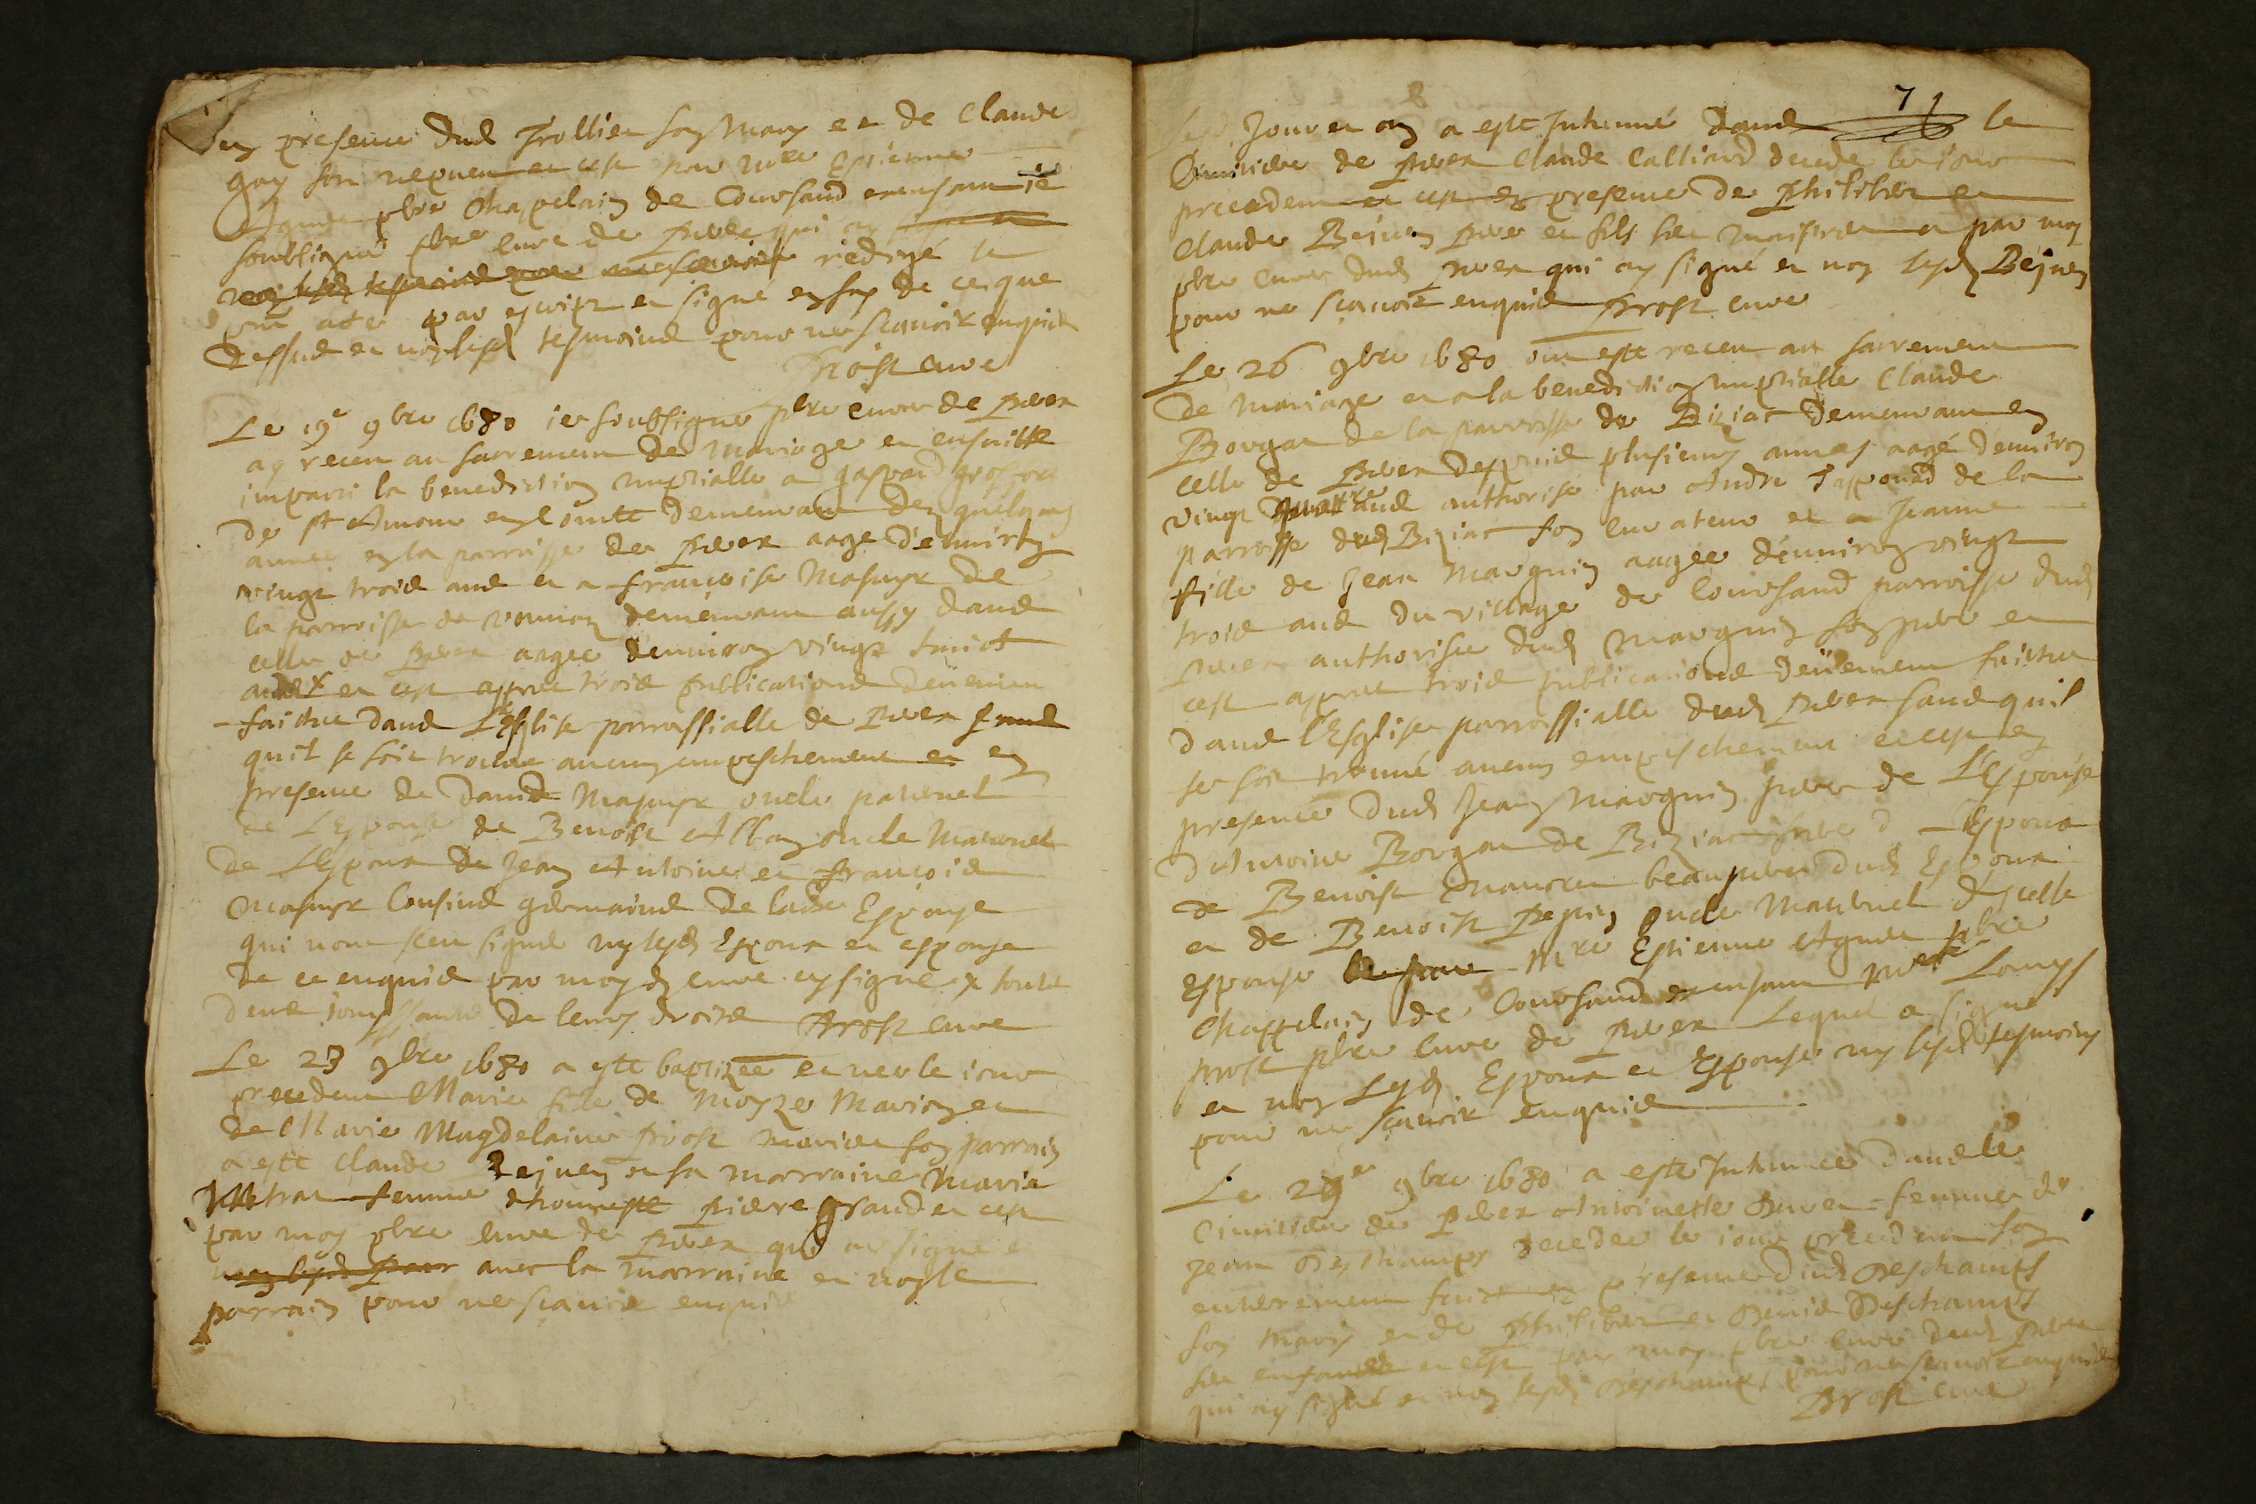 en presence dud Trollier son mary et de Claude
gay son nepueu et ce par mre Estienne
pbre Chapelain de Coursand
soubsigné pbre curé de Perex qui ay
redigé le
acte par escript et signé en foy de ce que
dessus et non lesd tesmoins pour ne scauoir enquis
Prost curé
Le 19e 9bre 1680 ie soubsigné pbre curé de Perex
ay receu au sacrement de Mariage et ensuitte
imparti la benediction nuptialle a gaspard
de st Amour en Comté demeurant des quelques
année en la parroisse de Perex aagé d'enuiron
vingt trois ans et a francoise Masuyr de
la parroisse de vonnaz demeurant aussy dans
celle de Perex aagee denuiron vingt huict
ans x et ce apres trois publications deuement
faictes dans L'Esglise parrossialle de Perex sans
quil se soit trouue aucun empeschement et en
presence de Masuyr oncle paternel
de L'Espouse de Benoist Alban oncle Maternel
de L'Espoux de Jean Antoine et francois
Masuyr Cousins germains de lade Espouse
qui nont sceu signé ny lesd Espoux et espouse
de ce enquis par moyd curé ay signé x touts
deux iouyssants de leurs droits Prost curé
Le 23 9bre 1680 a esté baptizée et neele iour
precedent Marie fille de Moyze Marion et
de Marie Magdelaine Prost mariés son parrain
a esté Claude Bejuen et sa marraine Marie
femme d'honneste pierre grand et ce
par moy pbre curé de Perex qui ay signé
auec la marraine et non le
parrain pour ne scauoir enquis
71
Jour et an a esté Inhumé dans le
Cimitiere de Perex Claude Calliard decede le iour
precedent et ce en presence de Philibert et
Claude Bejuen pere et fils ses et par moy
pbre curé dud Perex qui ay signé et non lesd Bejuen
pour ne scauoir enquis Prost curé
Le 26 9bre 1680 ont esté receu au sacrement
de Mariage et a la benediction nuptialle Claude
Borgat de la parroisse de Biziat demeurant en
celle de Perex despuis plusieurs annees aagé denuiron
vingt quatre ans authorise par Andre Tapponard de la
parroisse dud Biziat son curateur et a Jeanne
fille de Jean Marguin aagée denuiron vingt
trois ans du village de Coursand parroisse dud
Perex authorisee dud Marguin son pere et
ce apres trois publications deüement faictes
dans l'Esglise parrossialle dud Perex sans quil
se soit trouué aucun empeschement et ce en
presence dud Jean Marguin pere de L'Espouse
d'Antoine Borgat de Biziat frere d Espoux
de Benoist beaupere dud Espoux
et de Benoist Pepin oncle Maternel d'icelle
Espouse mre Estienne pbre
Chappelain de Coursand
prost pbre curé de Perex Lequel a signé
et non Lesd Espoux et Espouse ny lesd tesmoins
pour ne scauoir enquis
Le 29e 9bre 1680 a esté Inhumée dans le
Cimitiere de Perex Antoinette femme de
Jean Deschamps decedée le iour precedent son
enterrement faict en presence dud Deschamps
son mary et de Philibert et Denis Deschamps
ses enfans et ce par moy pbre curé dud Perex
qui ay signé et non lesd Deschamps pour ne scauoir enquis
Prost curé